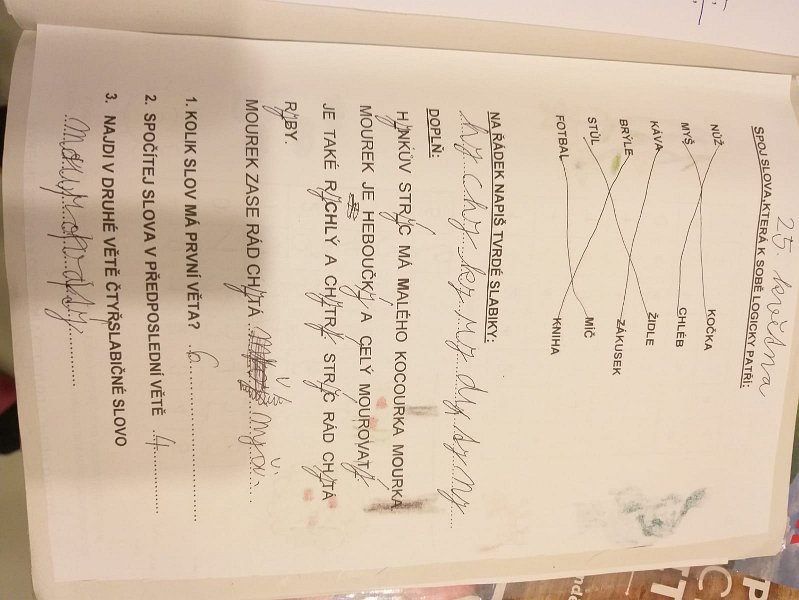 25. května
SPOJ SLOVA, KTERÁ K SOBĚ LOGICKY PATŘÍ:
NŮŽ KOČKA
MYŠ CHLÉB
KÁVA ŽIDLE
BRÝLE ZÁKUSEK
STŮL MÍČ
FOTBAL KNIHA
NA ŘÁDEK NAPIŠ TVRDÉ SLABIKY:
hy chy ky ry dy ty ny
DOPLŇ:
HYNKŮV STRÝC MÁ MALÉHO KOCOURKA MOURKA.
MOUREK JE HEBOUČKÝ A CELÝ MOUROVATÝ.
JE TAKÉ RYCHLÝ A CHYTRÝ. STRÝC RÁD CHYTÁ
RYBY.
MOUREK ZASE RÁD CHYTÁ
1. KOLIK SLOV MÁ PRVNÍ VĚTA? 6
2. SPOČÍTEJ SLOVA V PŘEDPOSLEDNÍ VĚTĚ 4
3. NAJDI V DRUHÉ VĚTĚ ČTYŘSLABIČNÉ SLOVO